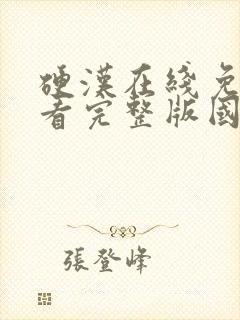 硬漢在綫免
看完整版國
張登峰